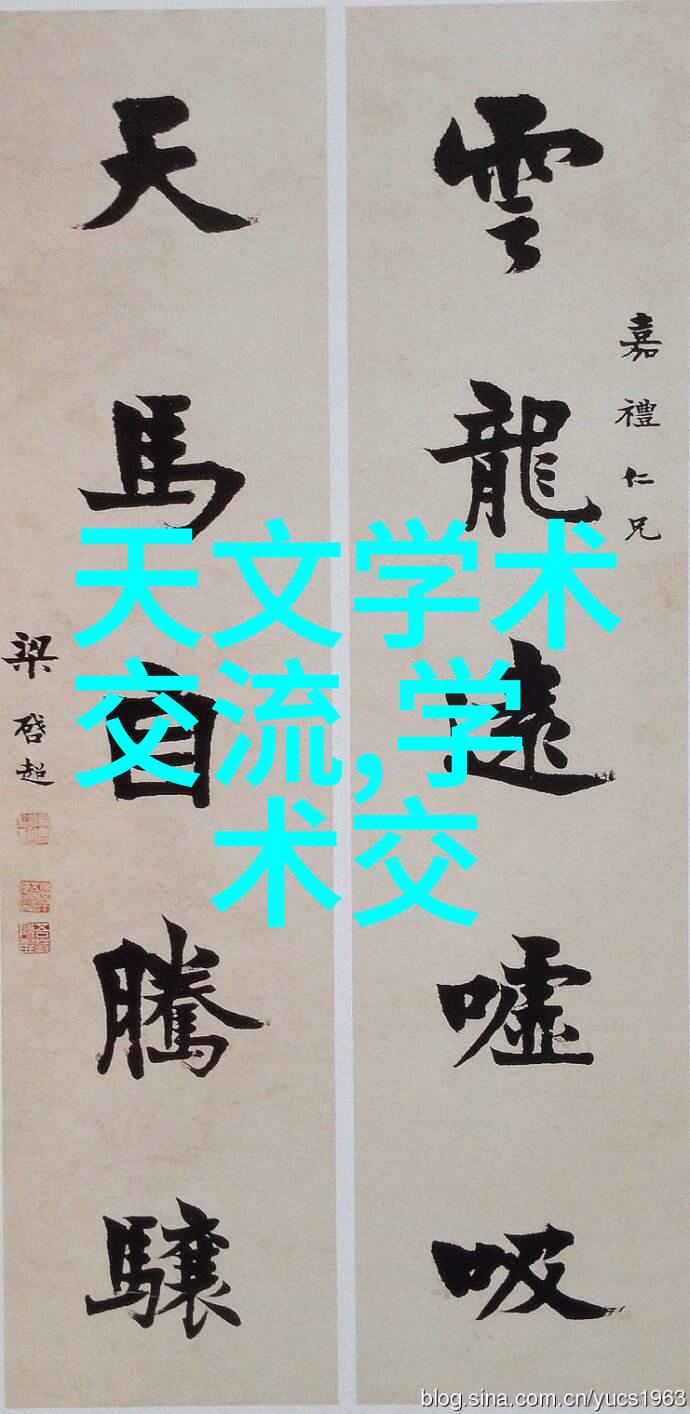 雲龍遠噓吸
嘉禮仁兄
天馬自騰驤
梁啓超
天文学术
交流,学
术交
blog.sina.com.cn/yucs1963